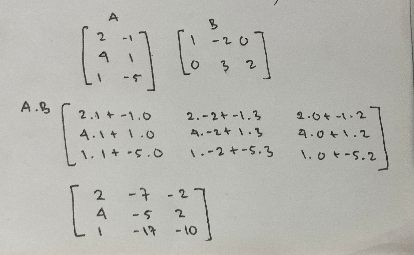 A B
[2 -1] [1 -2 0]
[4 1] [0 3 2]
[1 -5]
A.B [2.1+-1.0 2.-2+-1.3 2.0+-1.2]
[4.1+1.0 4.-2+1.3 4.0+1.2]
[1.1+-5.0 1.-2+-5.3 1.0+-5.2]
[2 -7 -2]
[4 -5 2]
[1 -17 -10]